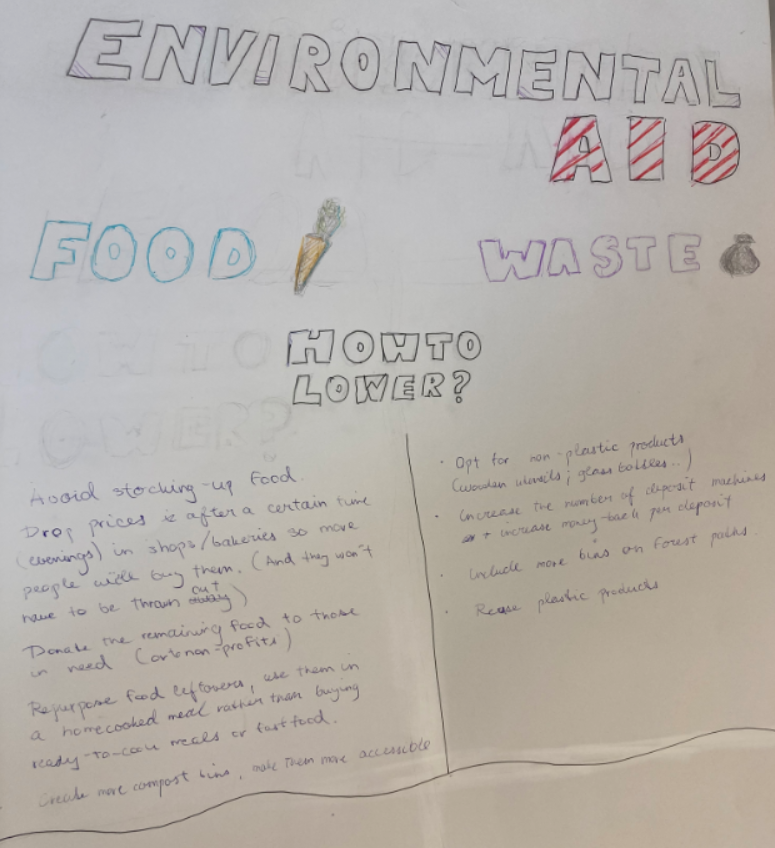 ENVIRONMENTAL
AID
FOOD
WASTE
HOW TO
LOWER?
Avoid stocking-up food.
Drop prices after a certain time
(evenings) in shops/bakeries so more
people will buy them. (And they won't
have to be thrown out)
Donate the remaining food to those
in need (non-profits)
Repurpose food leftovers, use them in
a homecooked meal rather than buying
ready-to-cook meals or fastfood.
Create more compost bins, make them more accessible
· Opt for non-plastic products
(wooden utensils; glass bottles..)
· Increase the number of deposit machines
+ increase money-back per deposit
· Include more bins on forest paths.
· Reuse plastic products